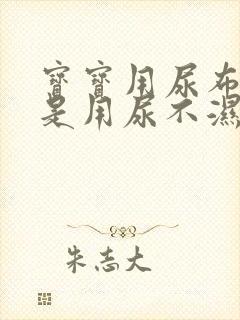 寶寶用尿布
是用尿不濕
朱志大